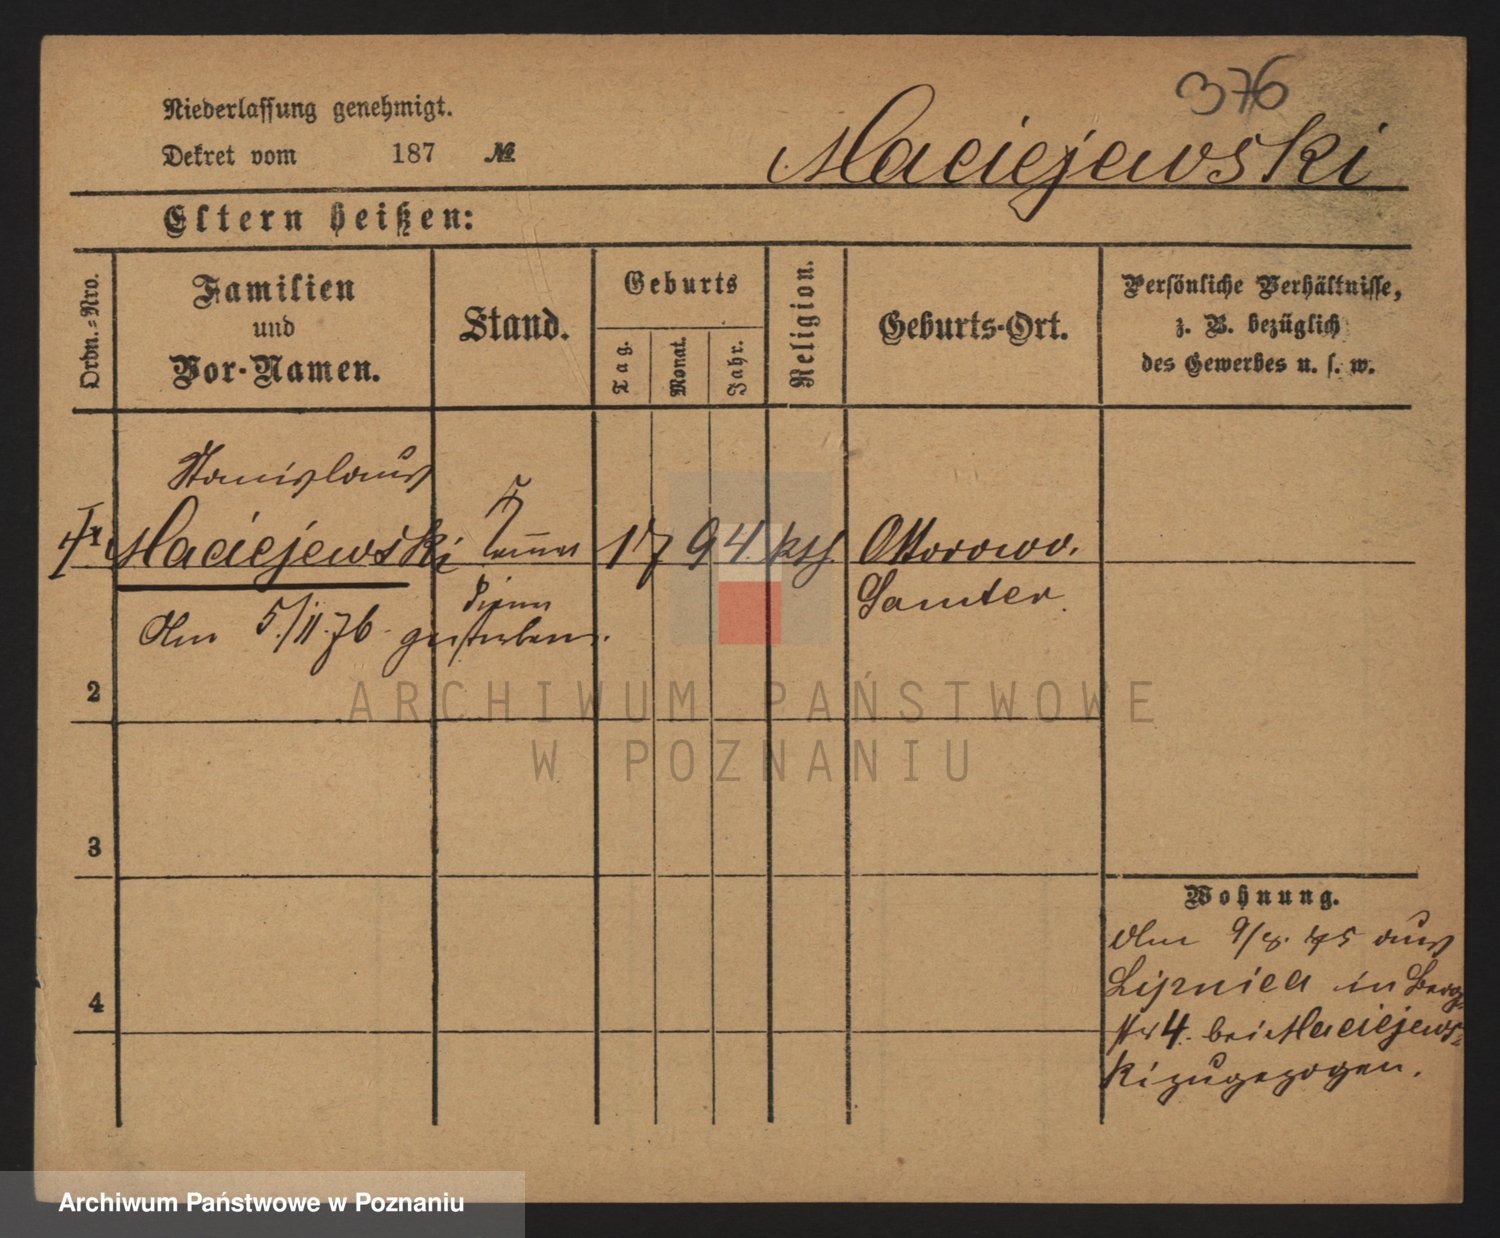 376
Niederlassung genehmigt.
Dekret vom 187 №
Maciejewski
Eltern heißen:
Ordn.-Nro.
Familien
und
Vor-Namen.
Stand.
Geburts
Tag.
Monat.
Jahr.
Religion.
Geburts-Ort.
Persönliche Verhältnisse,
z. B. bezüglich
des Gewerbes u. s. w.
Stanislaus
1
Maciejewski
1794
kth.
Ottorowo.
Samter
Am 5/11.76. gestorben.
2
3
4
Wohnung.
Am 9/8. 75 aus
Lipnica in Berg-
str 4. bei Maciejews-
ki zugezogen.
ARCHIWUM PAŃSTWOWE
W POZNANIU
Archiwum Państwowe w Poznaniu